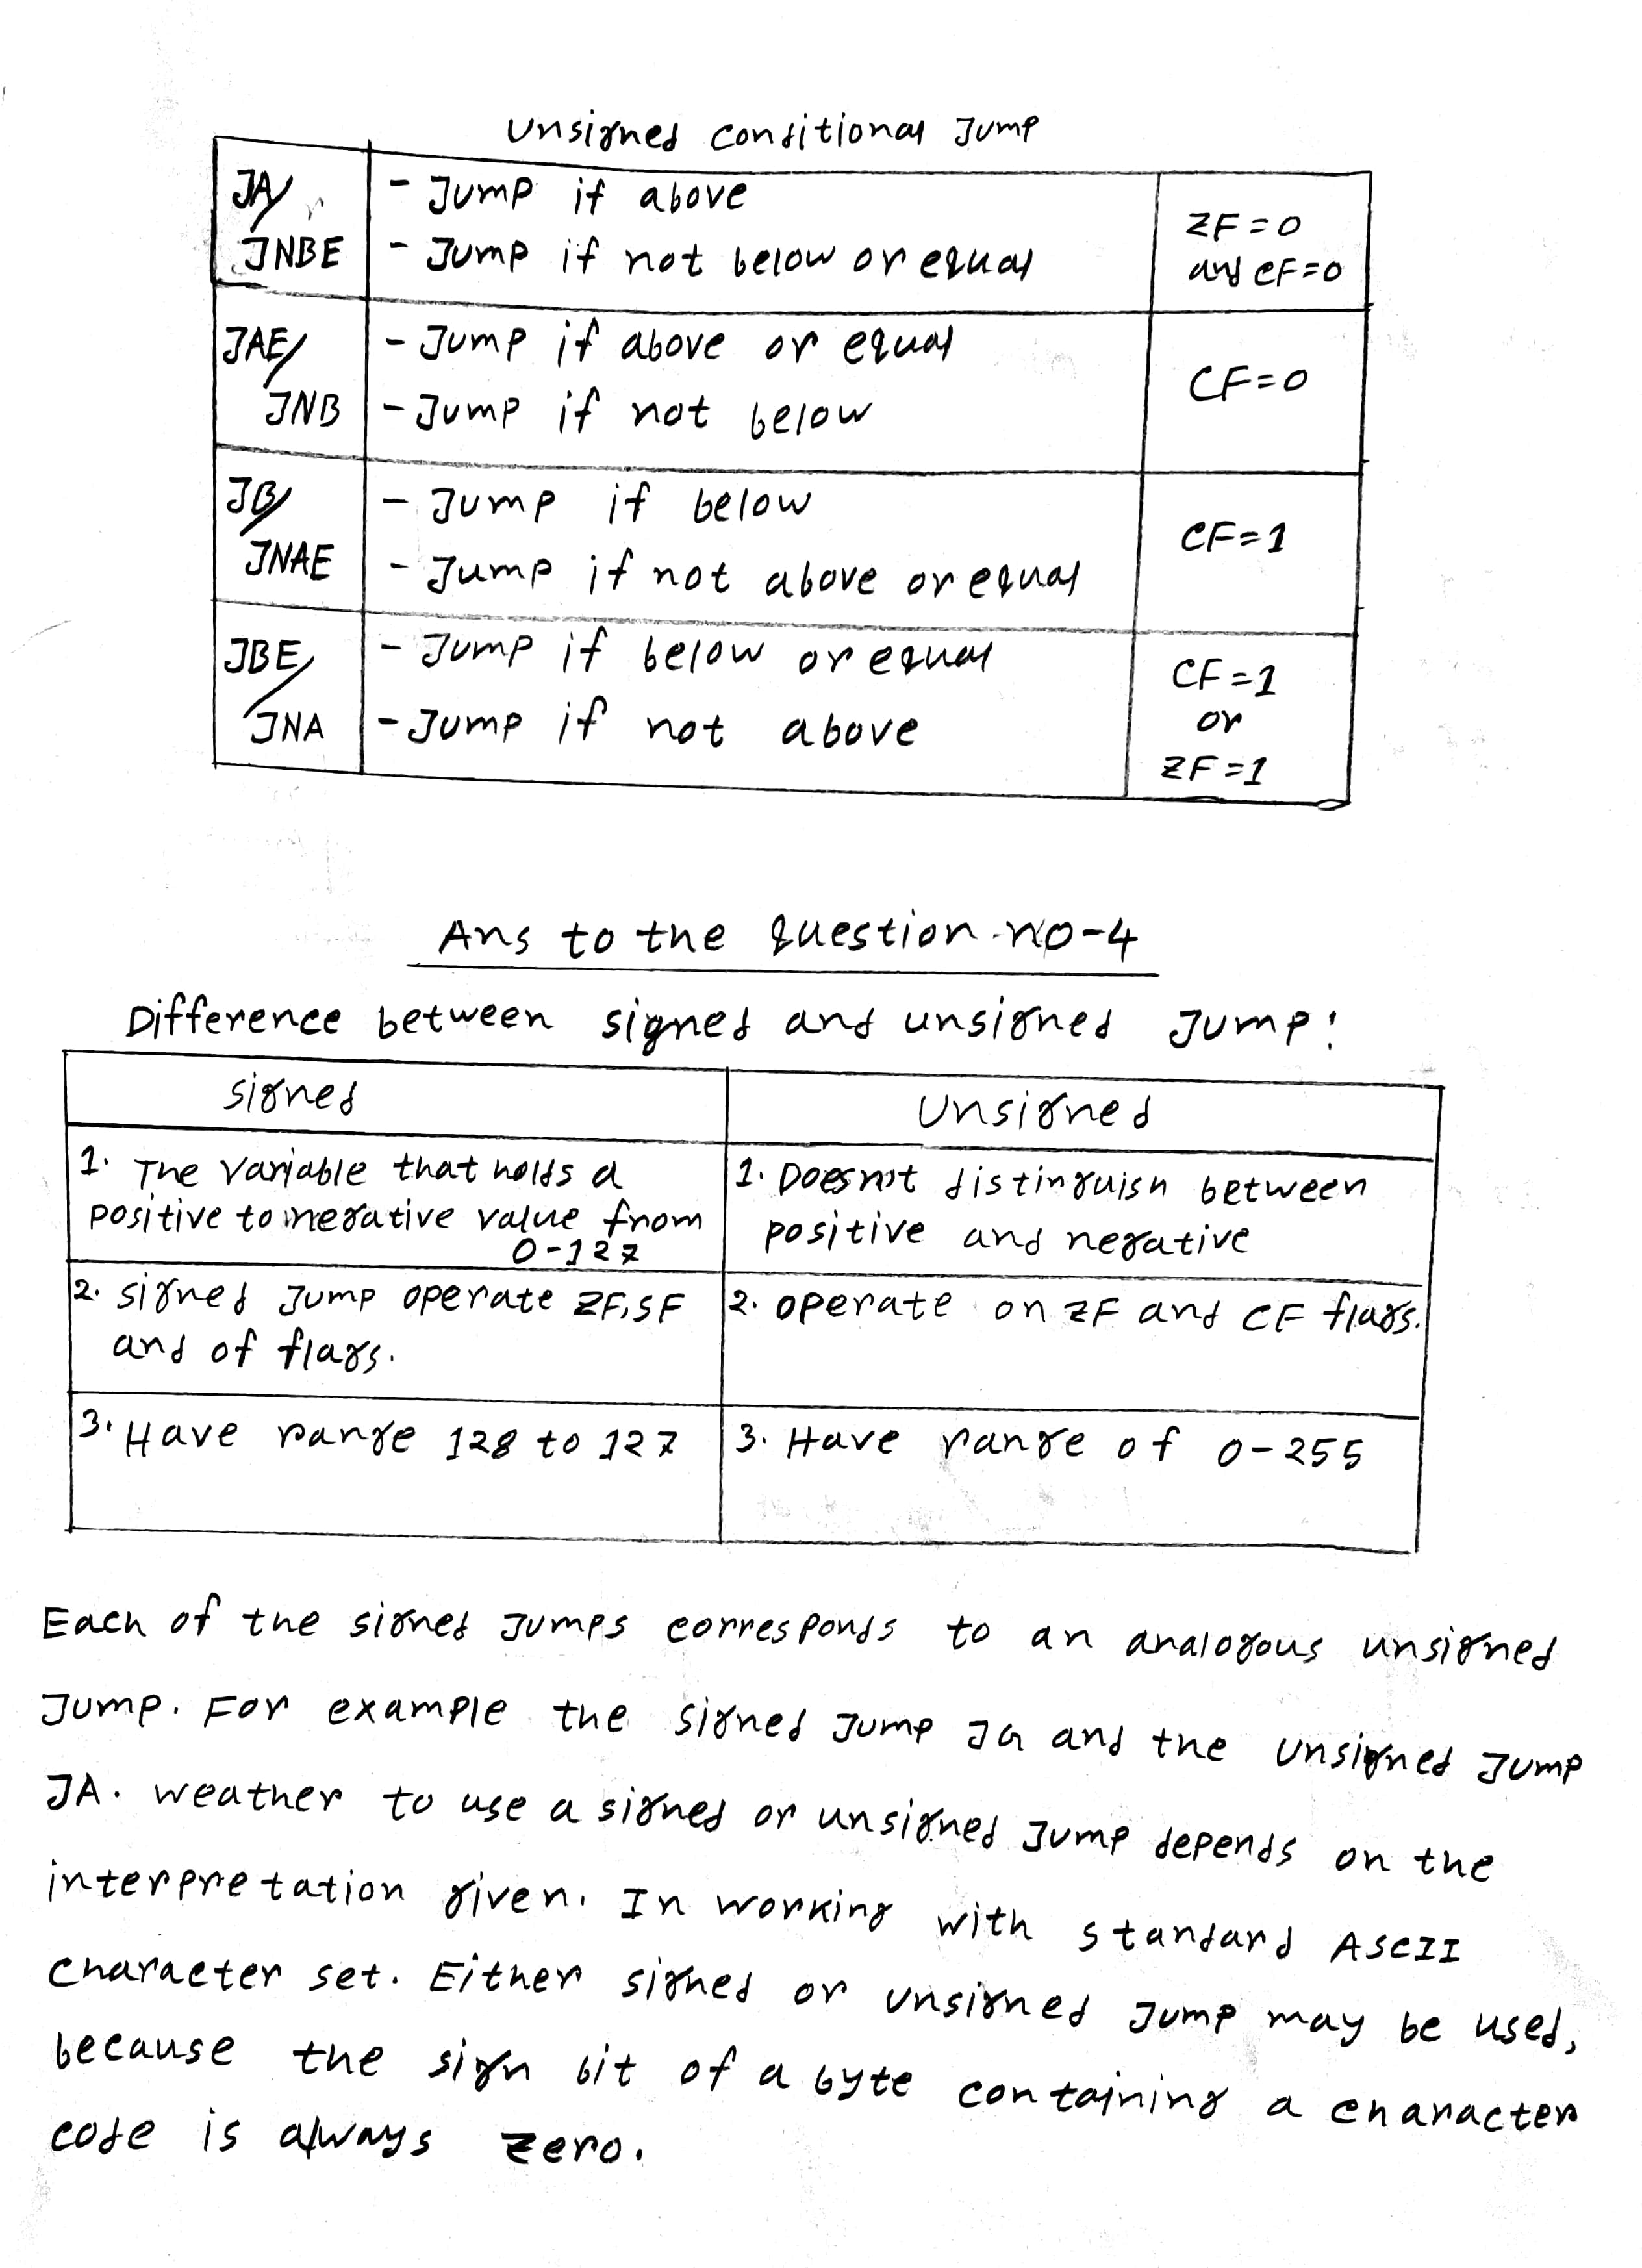 Unsigned Conditional Jump
JA/ - Jump if above
JNBE - Jump if not below or equal
ZF=0
and CF=0
JAE/ - Jump if above or equal
JNB - Jump if not below
CF=0
JB/ - Jump if below
JNAE - Jump if not above or equal
CF=1
JBE/ - Jump if below or equal
JNA - Jump if not above
CF=1
or
ZF=1
Ans to the question no-4
Difference between signed and unsigned Jump:
signed
Unsigned
1. The variable that holds a
positive to negative value from
0-127
1. Does not distinguish between
positive and negative
2. signed Jump operate ZF,SF
and of flags.
2. operate on ZF and CF flags.
3. Have range 128 to 127
3. Have range of 0-255
Each of the signed Jumps corresponds to an analogous unsigned
Jump. For example the signed Jump JG and the unsigned Jump
JA. weather to use a signed or unsigned Jump depends on the
interpretation given. In working with standard ASCII
character set. Either signed or unsigned Jump may be used,
because the sign bit of a byte containing a character
code is always zero.